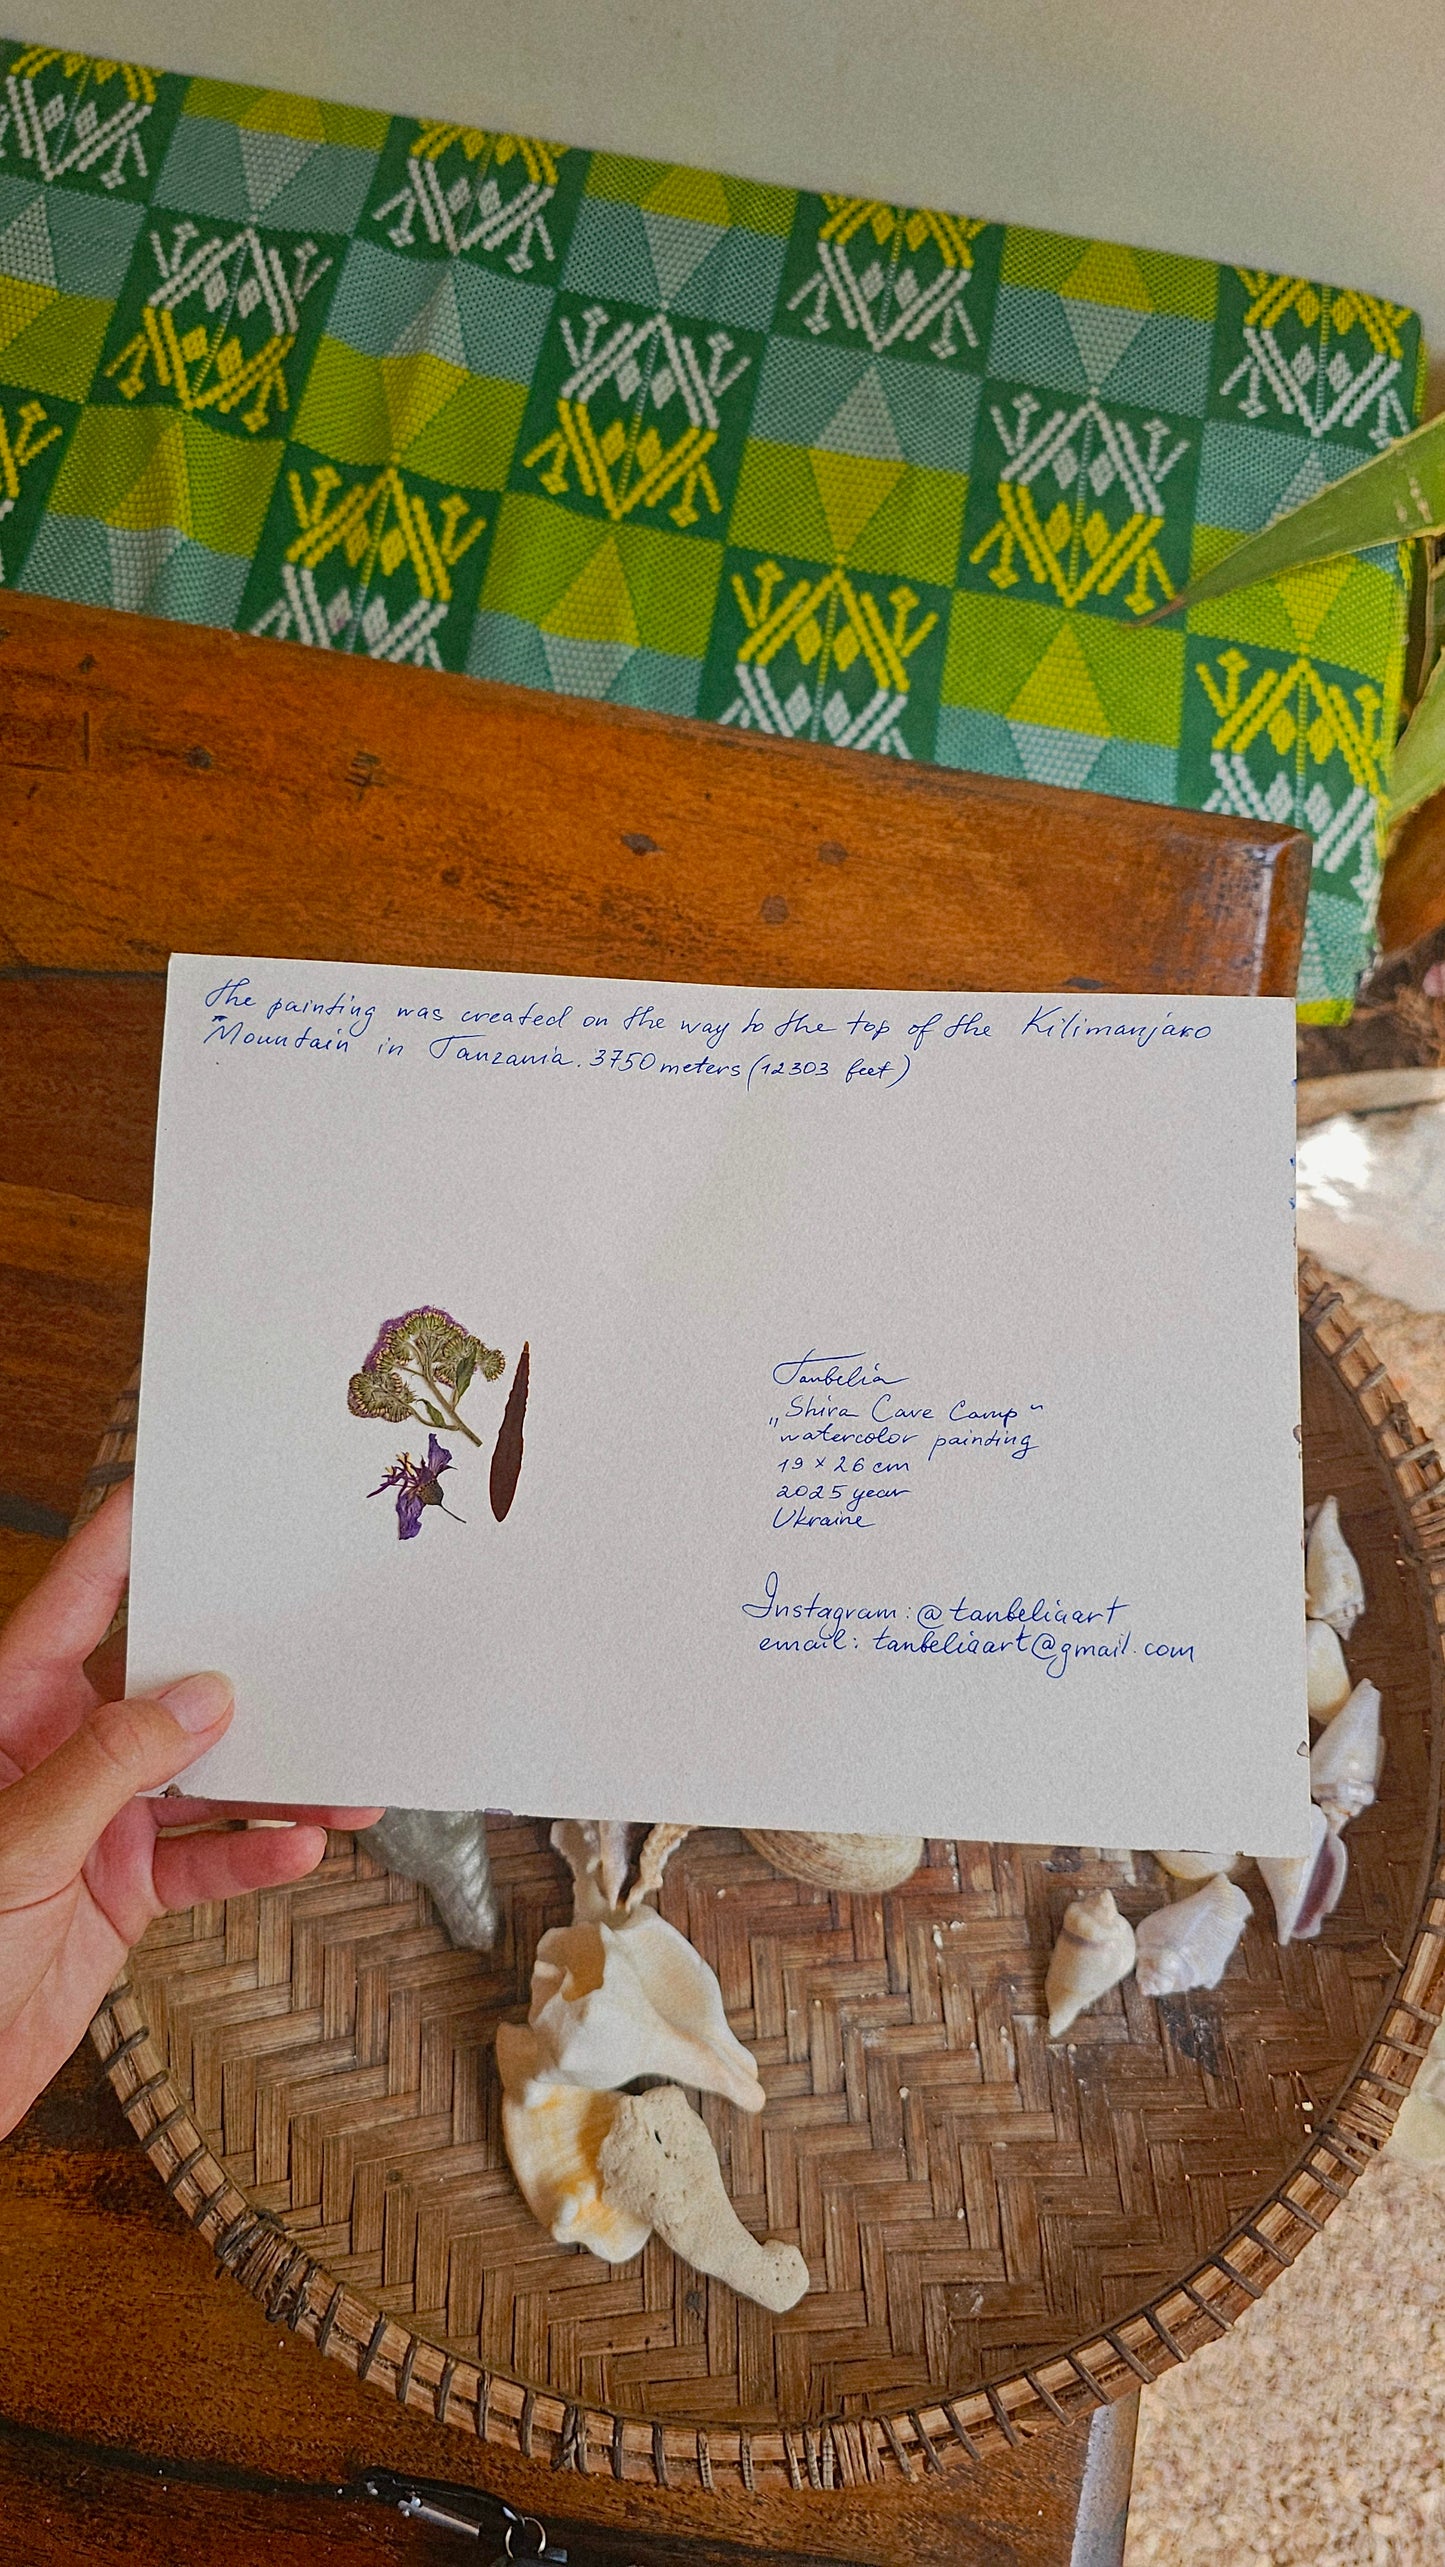 The painting was created on the way to the top of the Kilimanjaro
Mountain in Tanzania. 3750 meters (12303 feet)
Tanbelia
„Shira Cave Camp“
watercolor painting
19 x 26 cm
2025 year
Ukraine
Instagram: @tanbeliaart
email: tanbeliaart@gmail.com